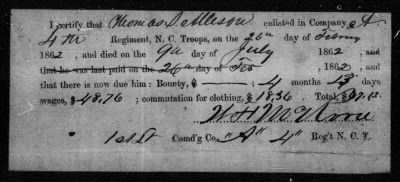 I certify that Thomas D. Allison enlisted in Company A
4th Regiment, N. C. Troops, on the 26th day of
1862, and died on the 9th day of July 1862, and
that he was last paid on the 26th day of Feb 1862, and
that there is now due him: Bounty, $ 4 months 13 days
wages, $48.76; commutation for clothing, $18.36 Total, $67.12
W H McNeill
1st Lt Comd'g Co. "A" 4" Reg't N. C. T.